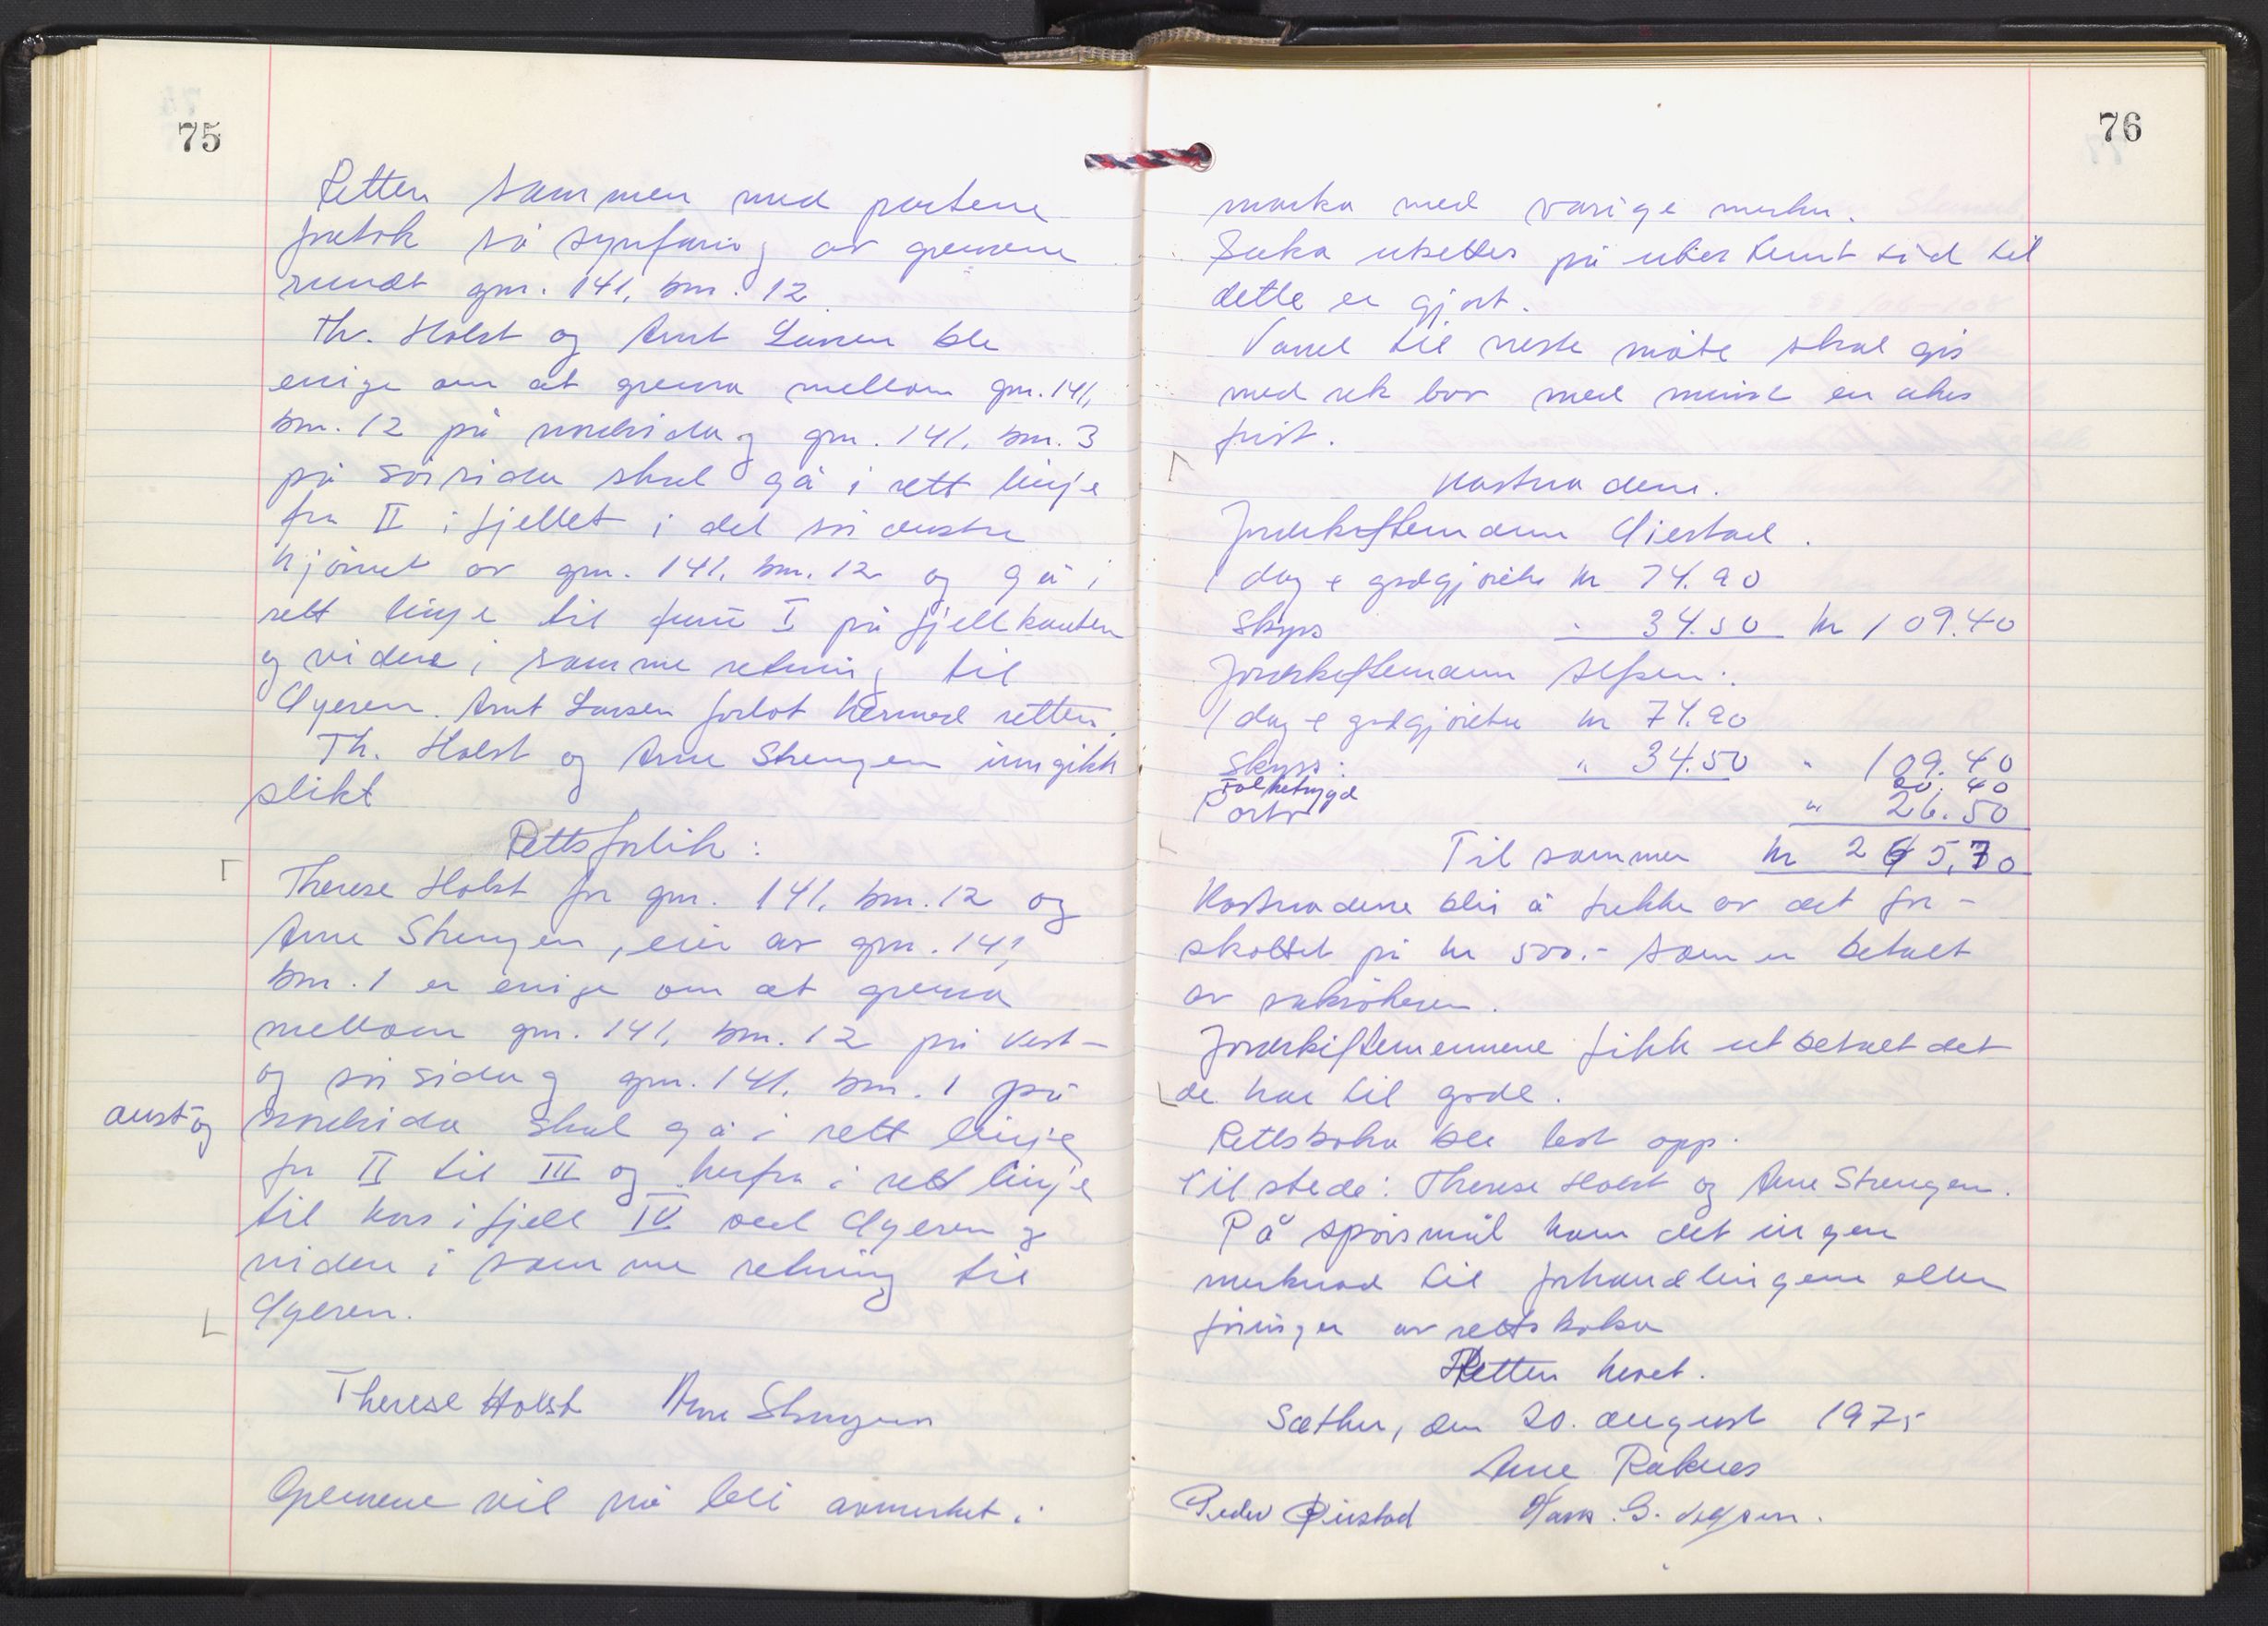 75
Retten sammen med partene
foretok så synfaring av grensene
rundt gnr. 141, bnr. 12
Th. Holst og Arnt Larsen ble
enige om at grensa mellom gnr. 141,
bnr. 12 på nordsida og gnr. 141, bnr. 3
på sørsida skal gå i rett linje
fra II i fjellet i det sør austre
hjørnet av gnr. 141, bnr. 12 og gå i
rett linje til I på fjellkanten
og videre i samme retning til
Øyeren. Arnt Larsen forlot hermed retten.
Th. Holst og Arne Strengen inngikk
slikt
Rettsforlik:
Therese Holst for gnr. 141, bnr. 12 og
Arne Strengen, eier av gnr. 141,
bnr. 1 er enige om at grensa
mellom gnr. 141, bnr. 12 på vest-
og sørsida og gnr. 141, bnr. 1 på
aust og nordsida skal gå i rett linje
fra II til III og herfra i rett linje
til kors i fjell IV ved Øyeren og
videre i samme retning til
Øyeren.
Therese Holst Arne Strengen
Grensene vil nå bli avmerket i
76
marka med varige merker.
Saka utsettes på ubestemt tid til
dette er gjort.
Varsel til neste møte skal gis
med rek brev med minst en ukes
frist.
Kostnadene.
Jordskiftemann Gierstad.
1 dag + godtgjørelse kr 74.90
Skyss " 34.50 kr 109.40
Jordskiftemann Alfsen:
1 dag + godtgjørelse kr 74.90
Skyss: " 34.50 " 109.40
Folketrygd 20.40
Porto " 26.50
Til sammen kr 265,70
Kostnadene blir å trekke av det for-
skottet på kr 500.- som er betalt
av saksøkeren.
Jordskiftemennene fikk utbetalt det
de har til gode.
Rettsboka ble lest opp.
Til stede: Therese Holst og Arne Strengen.
På spørsmål kom det ingen
merknad til forhandlingene eller
føringen av rettsboka
Retten hevet.
Sæther, den 20. august 1975
Arne Raknes
Peder Gierstad Hans. G. Alfsen.